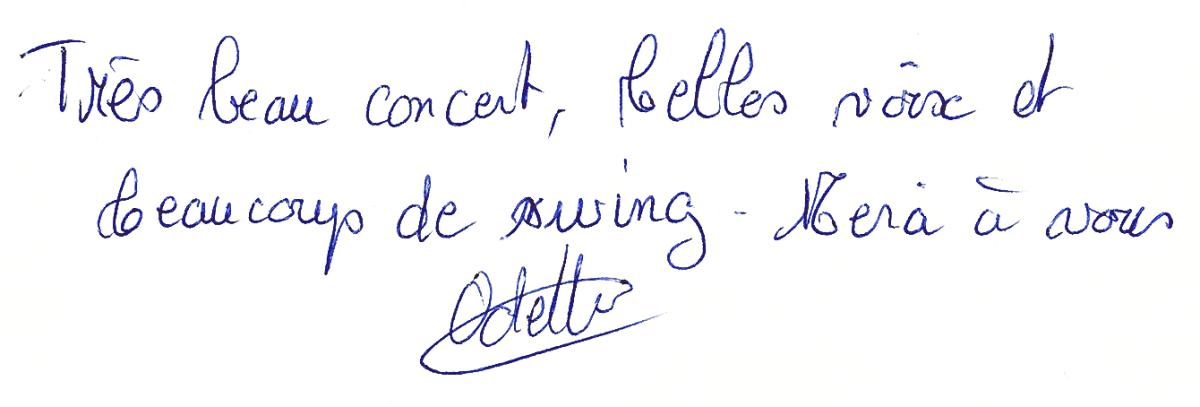 Très beau concert, belles voix et
beaucoup de swing - Merci à vous
Odette